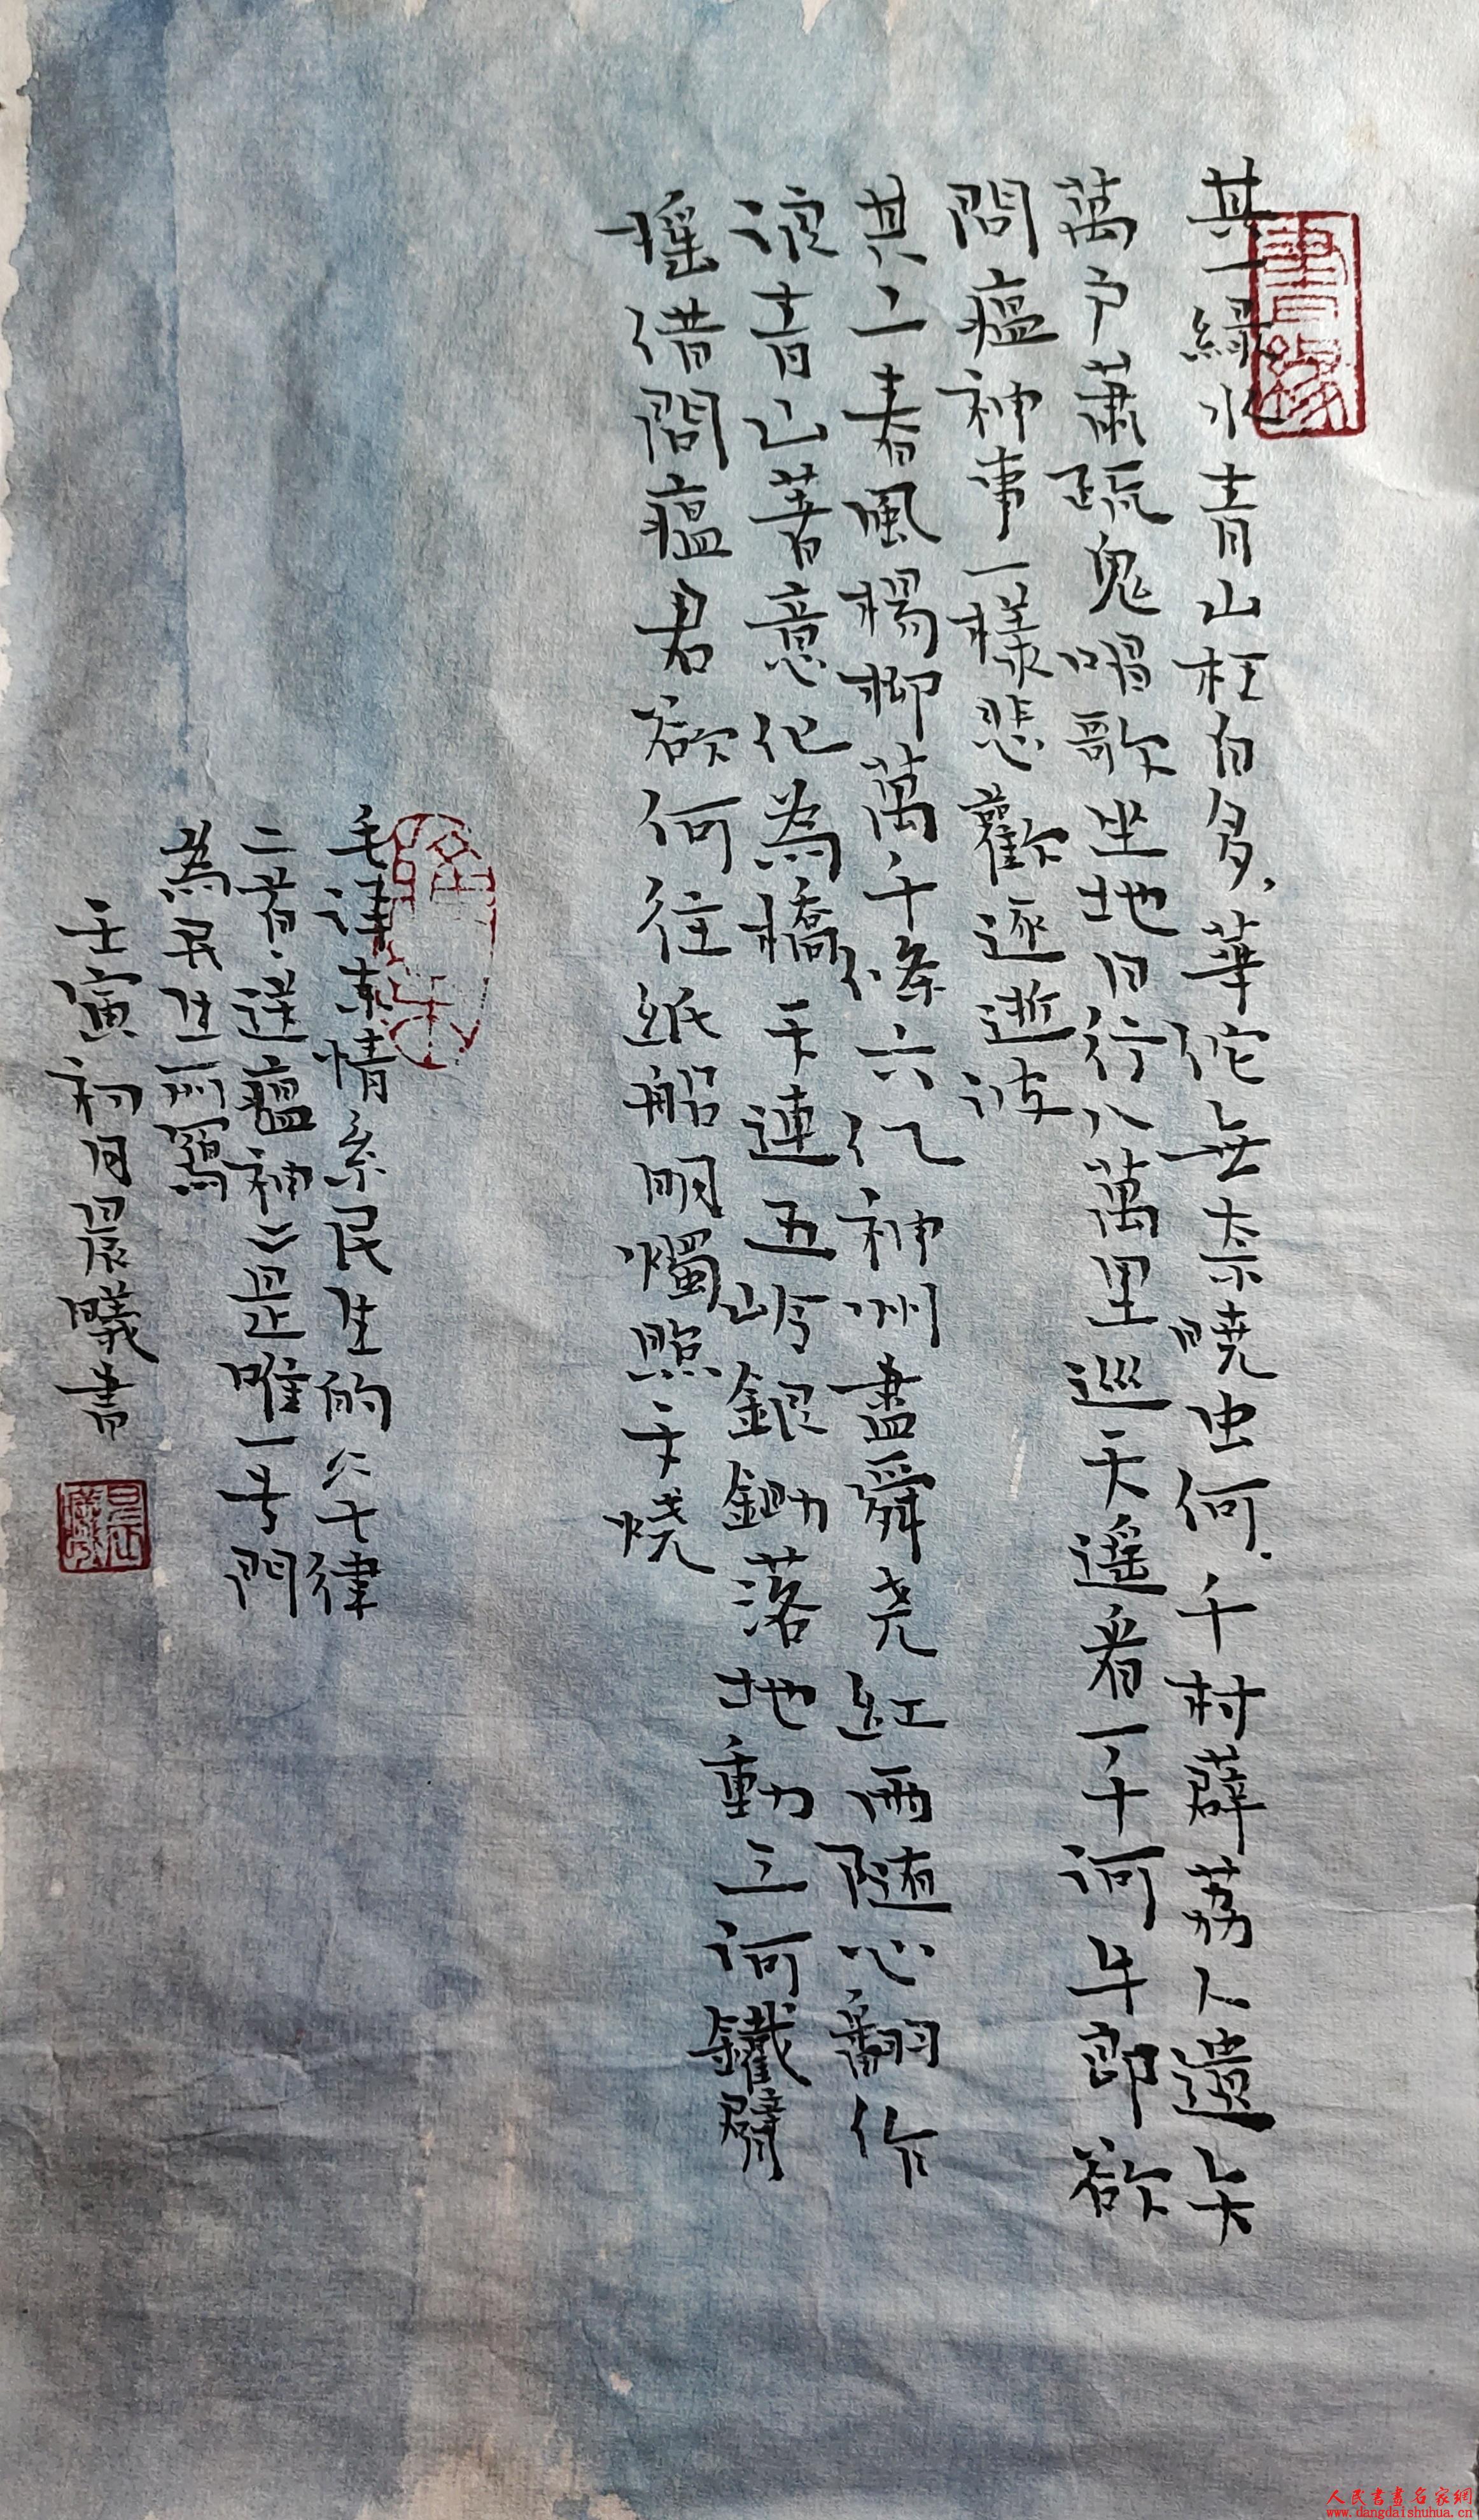 其一緑水青山枉自多，華佗無奈曉虫何．千村薜荔人遺矢
萬户蕭疏鬼唱歌坐地日行八萬里巡天遥看一千河牛郎欲
問瘟神事一樣悲歡逐逝波
其二春風楊柳萬千條六亿神州盡舜尧紅雨隨心翻作
浪青山着意化為橋天連五岭銀鋤落地動三河鐵臂
摇借問瘟君欲何往紙船明燭照天烧
毛泽東情系民生的《七律
二首·送瘟神》是唯一專門
為民生而寫
壬寅初月晨曦書
人民書畫名家網
www.dangdaishuhua.cn